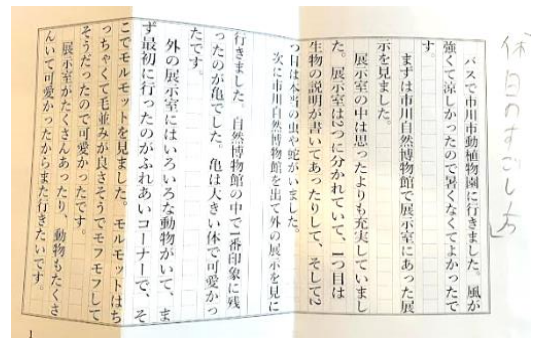 休日のすごし方
バスで市川市動植物園に行きました。風が
強くて涼しかったので暑くなくてよかったで
す。
まずは市川自然博物館で展示室にあった展
示を見ました。
展示室の中は思ったよりも充実していまし
た。展示室は2つに分かれていて、1つ目は
生物の説明が書いてあったりして、そして2
つ目は本当の虫や蛇がいました。
次に市川自然博物館を出て外の展示を見に
行きました。自然博物館の中で1番印象に残
ったのが亀でした。亀は大きい体で可愛かっ
たです。
外の展示室にはいろいろな動物がいて、ま
ず最初に行ったのがふれあいコーナーで、そ
こでモルモットを見ました。モルモットはち
っちゃくて毛並みが良さそうでモフモフして
そうだったので可愛かったです。
展示室がたくさんあったり、動物もたくさ
んいて可愛かったからまた行きたいです。
1